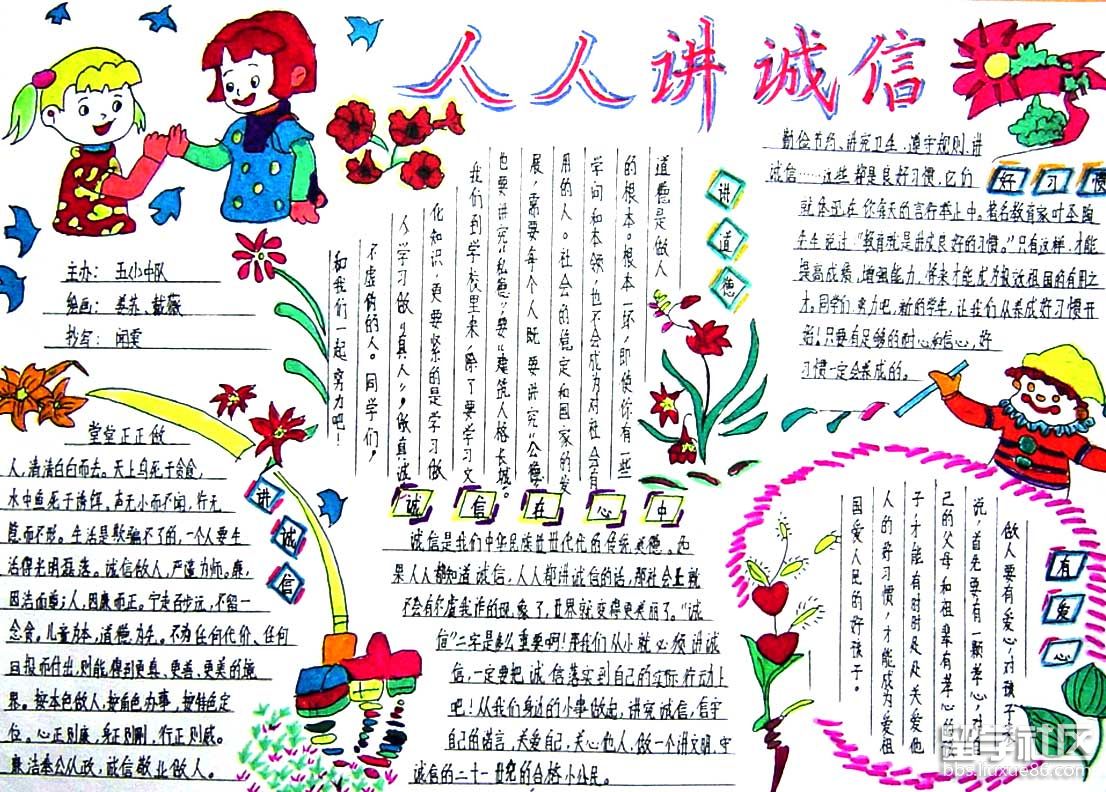 人人讲诚信
主办：五小中队
绘画：姜苏、戴薇
抄写：闻雯
讲道德
道德是做人
的根本。根本一坏，即使你有一些
学问和本领，也不会成为对社会有
用的人。社会的稳定和国家的发
展，需要每个人既要讲究“公德”，
也要讲究“私德”，要“建筑人格长城”。
我们到学校里来，除了要学习文
化知识，更要紧的是学习做
人，学习做“真人”，做真诚
不虚伪的人。同学们，
和我们一起努力吧！
好习惯
勤俭节约、讲究卫生、遵守规则、讲
诚信……这些都是良好习惯，它们
就体现在你每天的言行举止中。著名教育家叶圣陶
先生说过：“教育就是讲良好的习惯。”只有这样，才能
提高成绩，增强能力，将来才能成为报效祖国的有用之
才。同学们，努力吧，新的学年，让我们从养成好习惯开
始！只要有足够的耐心和信心，好
习惯一定会养成的。
讲诚信
堂堂正正做
人，清清白白而去。天上鸟死于贪食，
水中鱼死于诱饵。声无小而不闻，行无
隐而不形。生活是欺骗不了的，一个人要生
活得光明磊落。诚信做人，严谨为师。廉，
因洁而尊；人，因廉而正。宁走百步远，不留一
念贪。儿童为本，道德为先。不为任何代价、任何
回报而付出，则能得到更真、更善、更美的境
界。按本色做人，按角色办事，按特色定
位。心正则廉，身正则刚，行正则威。
廉洁奉公从政，诚信敬业做人。
诚信在心中
诚信是我们中华民族世世代代的传统美德。如
果人人都知道诚信，人人都讲诚信的话，那社会上就
不会有尔虞我诈的现象了，世界就变得更美丽了。“诚
信”二字是多么重要啊！那我们从小就必须讲诚
信，一定要把诚信落实到自己的实际行动上
吧！从我们身边的小事做起，讲究诚信，信守
自己的诺言，关爱自己，关心他人，做一个讲文明，守
诚信的二十一世纪的合格小公民。
有爱心
做人要有爱心，对孩子来
说，首先要有一颗孝心，对自
己的父母和祖辈有孝心的孩
子才能有时时处处关爱他
人的好习惯，才能成为爱祖
国爱人民的好孩子。
留学社区
bbs.liuxue86.com